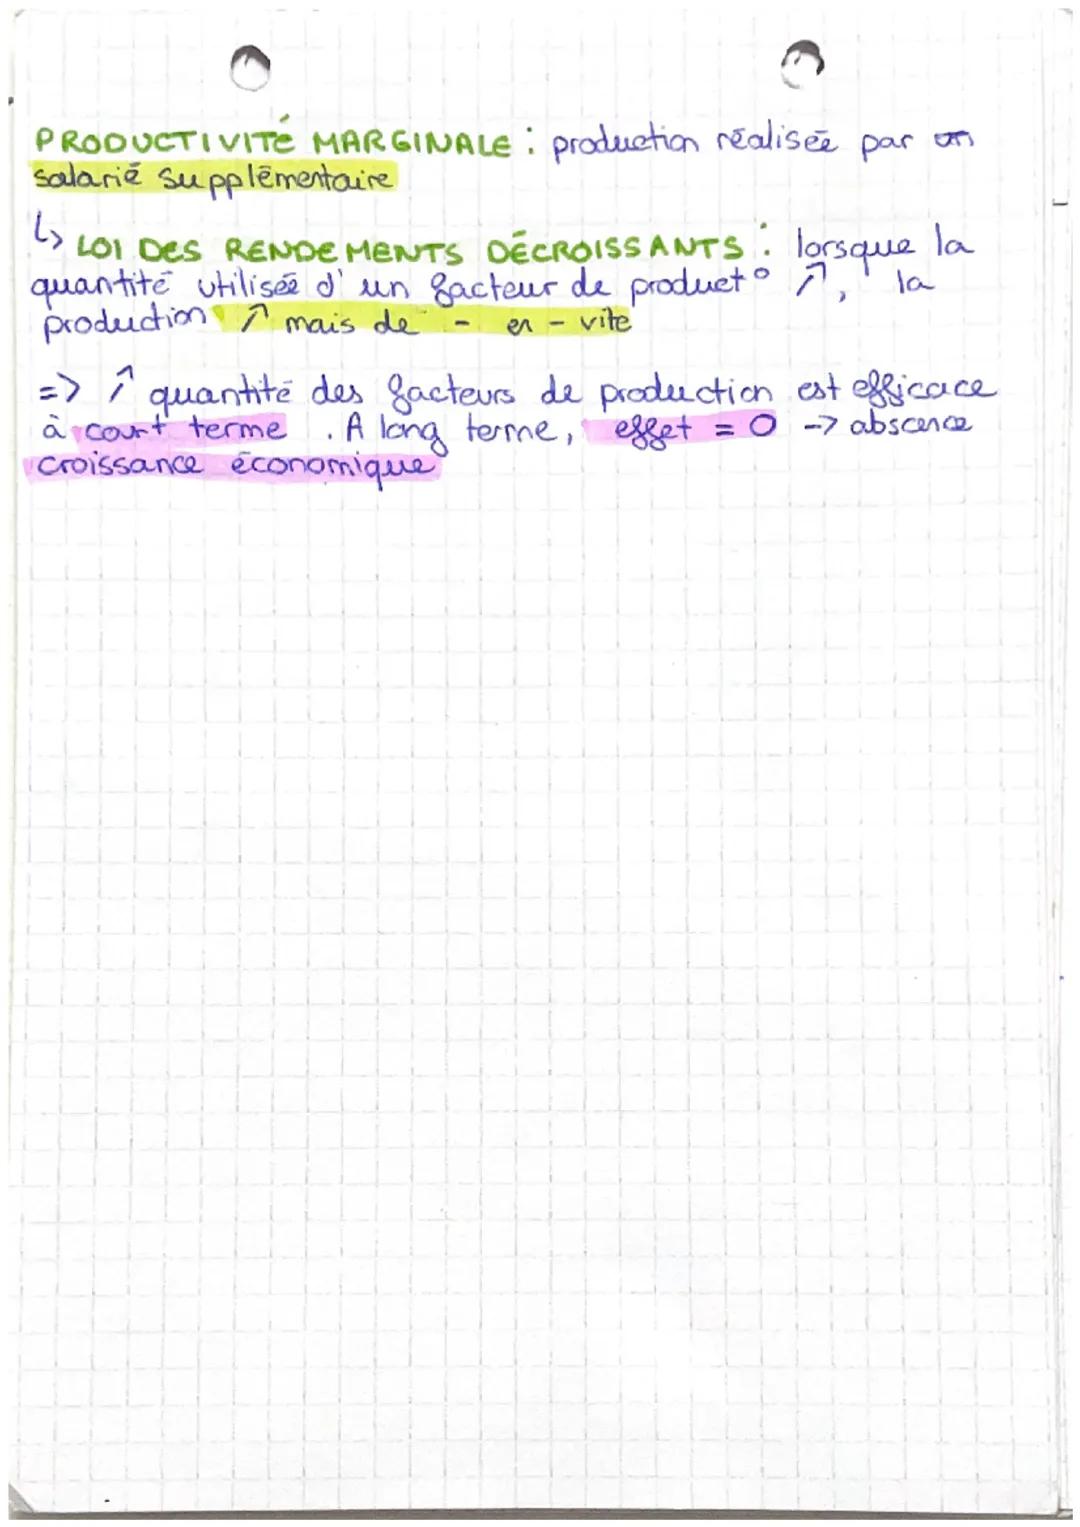 PRODUCTIVITÉ MARGINALE : production réalisée par un
salarié supplémentaire
↳ LOI DES RENDEMENTS DÉCROISSANTS : lorsque la
quantité utilisée d'un facteur de product° ↗, la
production ↗ mais de - en - vite
=> ↗ quantité des facteurs de production est efficace
à court terme . A long terme, effet = 0 -> abscence
croissance économique